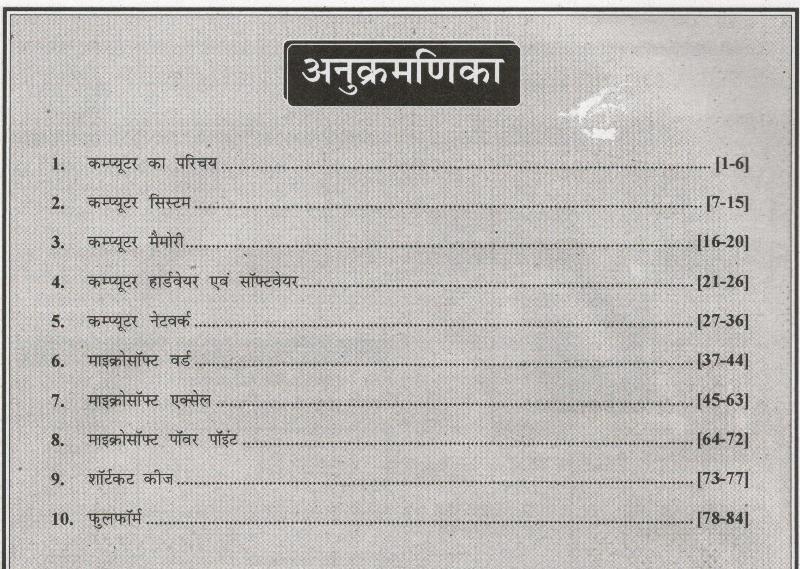 अनुक्रमणिका
1. कम्प्यूटर का परिचय ........ [1-6]
2. कम्प्यूटर सिस्टम ........ [7-15]
3. कम्प्यूटर मैमोरी ........ [16-20]
4. कम्प्यूटर हार्डवेयर एवं सॉफ्टवेयर ........ [21-26]
5. कम्प्यूटर नेटवर्क ........ [27-36]
6. माइक्रोसॉफ्ट वर्ड ........ [37-44]
7. माइक्रोसॉफ्ट एक्सेल ........ [45-63]
8. माइक्रोसॉफ्ट पॉवर पॉइंट ........ [64-72]
9. शॉर्टकट कीज ........ [73-77]
10. फुलफॉर्म ........ [78-84]